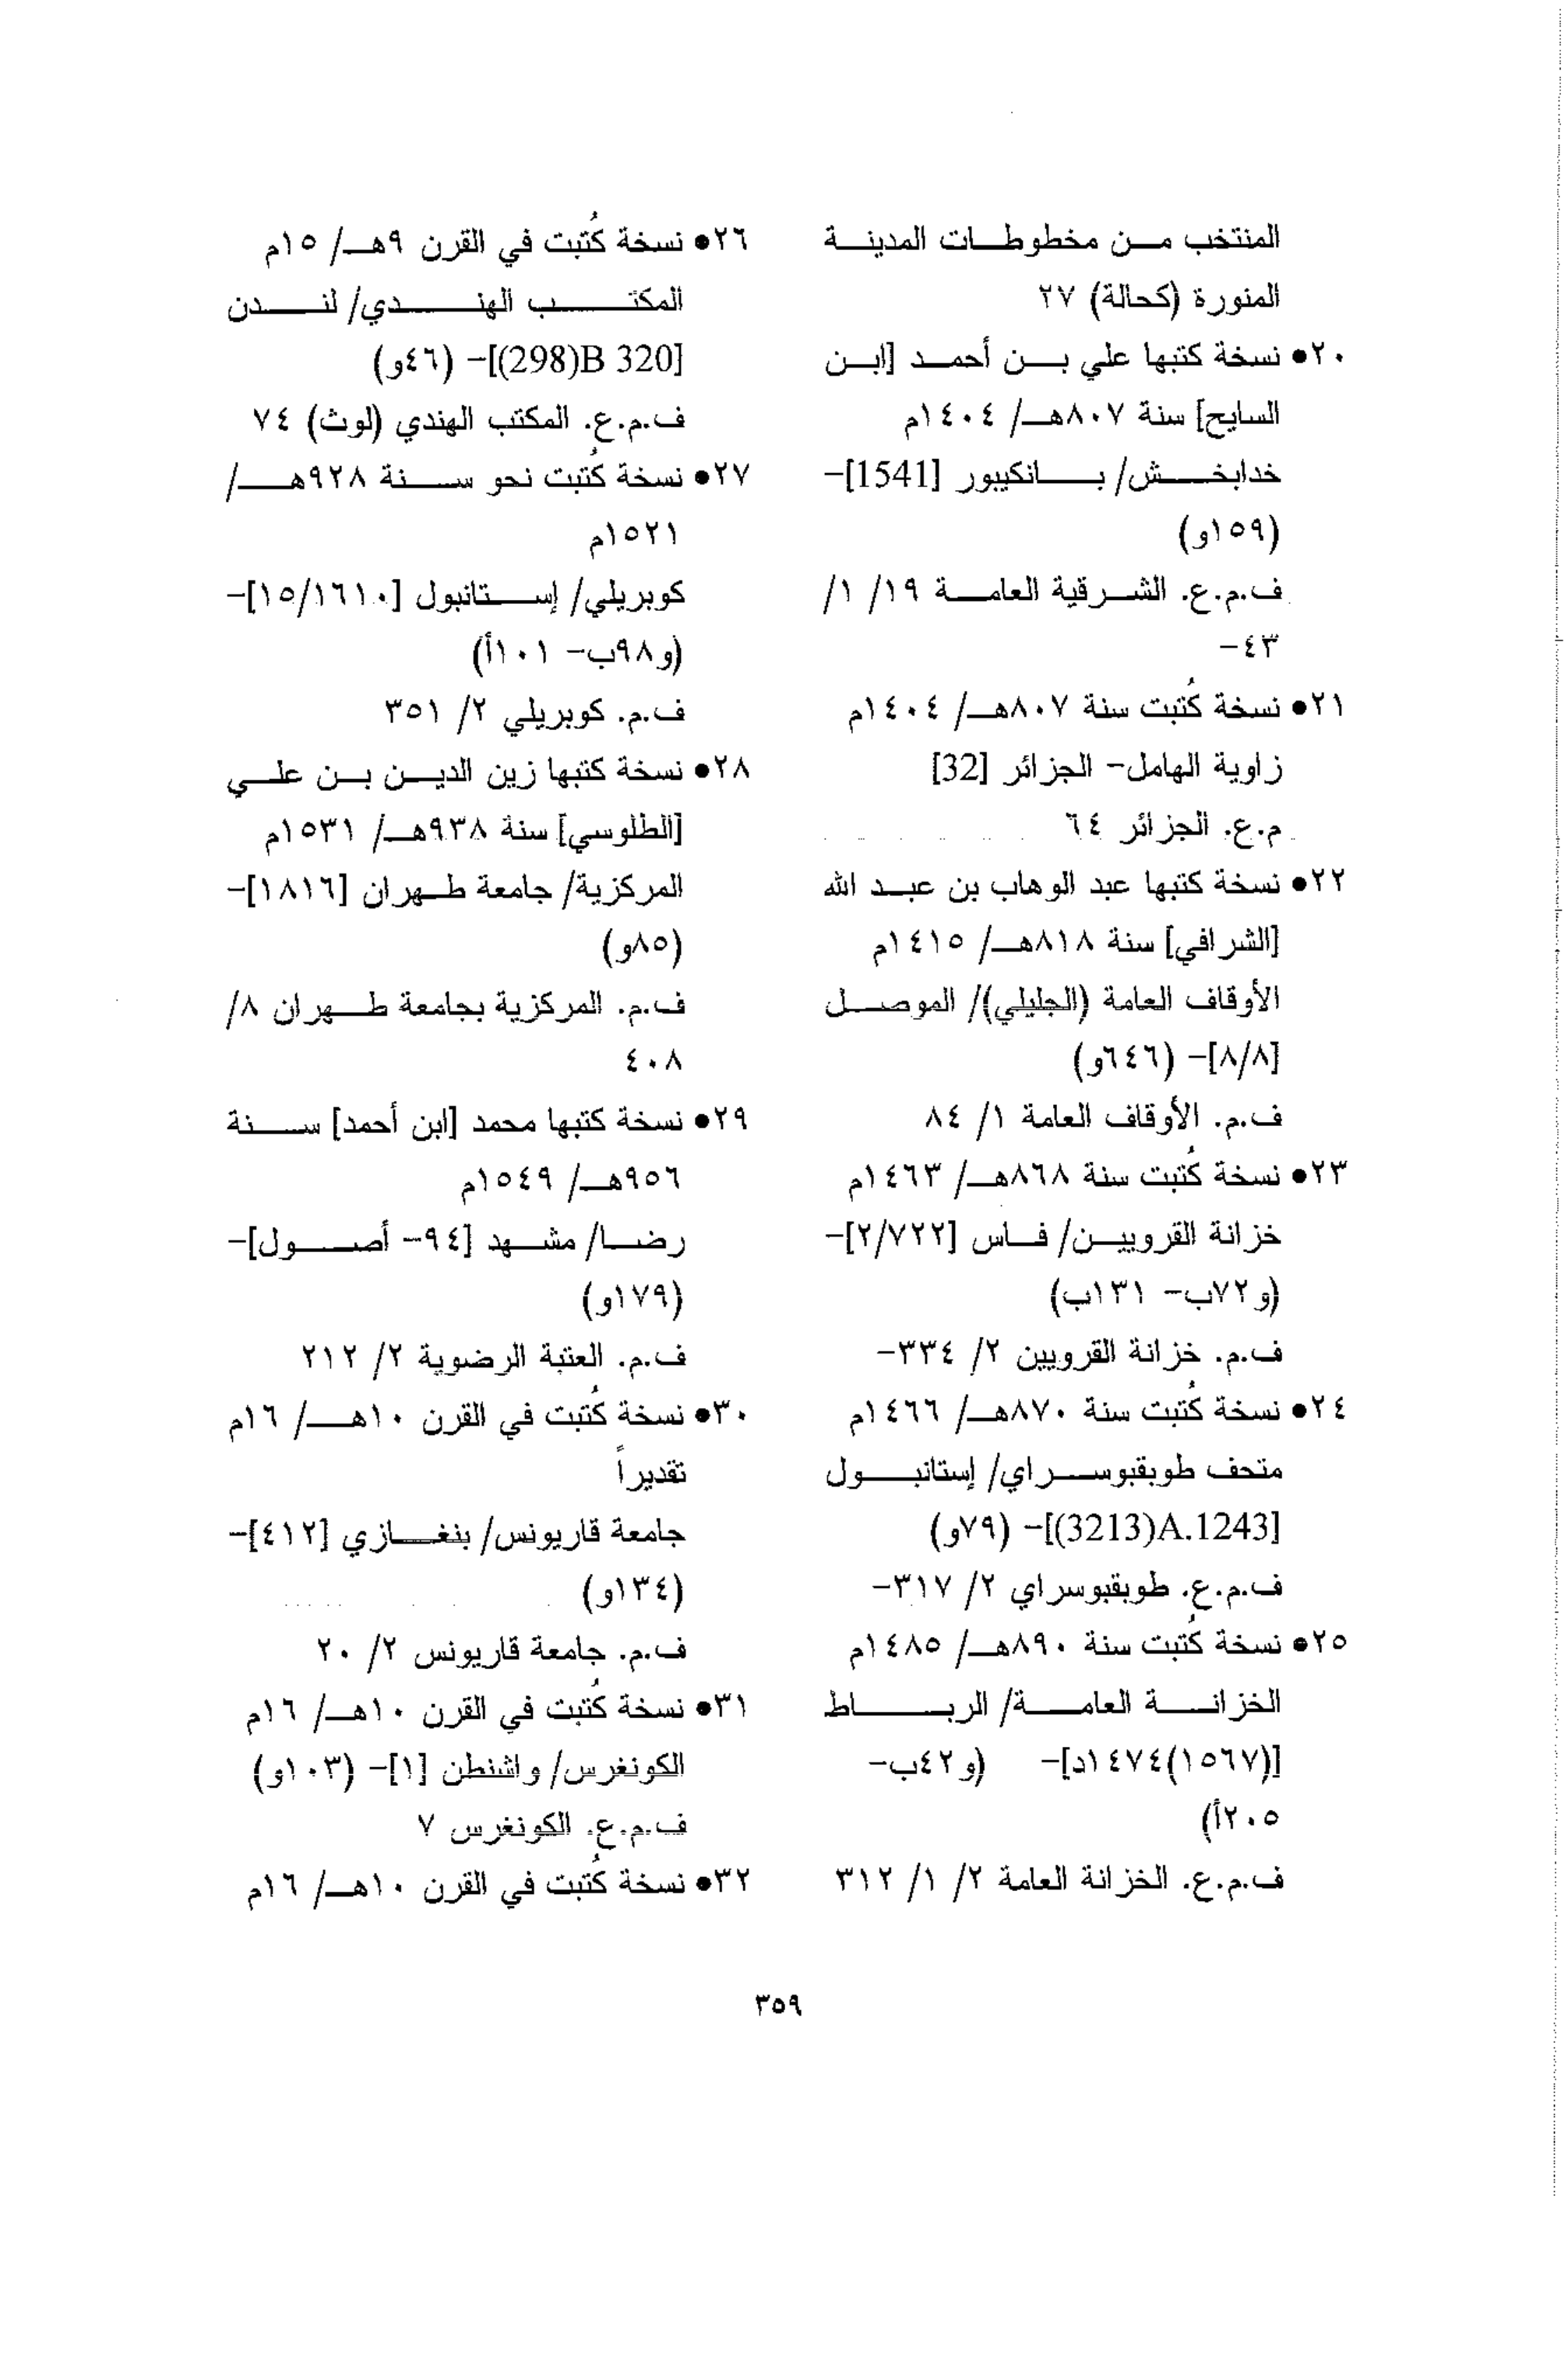 المنتخب من مخطوطات المدينة
المنورة (كحالة) ٢٧
٢٠● نسخة كتبها علي بن أحمد [ابن
السايح] سنة ٨٠٧هـ/ ١٤٠٤م
خدابخش/ بانكيبور [1541]-
(١٥٩و)
ف.م.ع. الشرقية العامة ١٩/ ١/
٤٣-
٢١● نسخة كُتبت سنة ٨٠٧هـ/ ١٤٠٤م
زاوية الهامل- الجزائر [32]
م.ع. الجزائر ٦٤
٢٢● نسخة كتبها عبد الوهاب بن عبد الله
[الشرافي] سنة ٨١٨هـ/ ١٤١٥م
الأوقاف العامة (الجليلي)/ الموصل
[٨/٨]- (٦٤٦و)
ف.م. الأوقاف العامة ١/ ٨٤
٢٣● نسخة كُتبت سنة ٨٦٨هـ/ ١٤٦٣م
خزانة القرويين/ فاس [٢/٧٢٢]-
(و٧٢ب- ١٣١ب)
ف.م. خزانة القرويين ٢/ ٣٣٤-
٢٤● نسخة كُتبت سنة ٨٧٠هـ/ ١٤٦٦م
متحف طوبقبوسراي/ إستانبول
[A.1243(3213)]- (٧٩و)
ف.م.ع. طوبقبوسراي ٢/ ٣١٧-
٢٥● نسخة كُتبت سنة ٨٩٠هـ/ ١٤٨٥م
الخزانة العامة/ الرباط
[(١٥٦٧)١٤٧٤د]- (و٤٢ب-
٢٠٥أ)
ف.م.ع. الخزانة العامة ٢/ ١/ ٣١٢
٢٦● نسخة كُتبت في القرن ٩هـ/ ١٥م
المكتب الهندي/ لندن
[B 320(298)]- (٤٦و)
ف.م.ع. المكتب الهندي (لوث) ٧٤
٢٧● نسخة كُتبت نحو سنة ٩٢٨هـ/
١٥٢١م
كوبريلي/ إستانبول [١٥/١٦١٠]-
(و٩٨ب- ١٠١أ)
ف.م. كوبريلي ٢/ ٣٥١
٢٨● نسخة كتبها زين الدين بن علي
[الطلوسي] سنة ٩٣٨هـ/ ١٥٣١م
المركزية/ جامعة طهران [١٨١٦]-
(٨٥و)
ف.م. المركزية بجامعة طهران ٨/
٤٠٨
٢٩● نسخة كتبها محمد [ابن أحمد] سنة
٩٥٦هـ/ ١٥٤٩م
رضا/ مشهد [٩٤- أصول]-
(١٧٩و)
ف.م. العتبة الرضوية ٢/ ٢١٢
٣٠● نسخة كُتبت في القرن ١٠هـ/ ١٦م
تقديراً
جامعة قاريونس/ بنغازي [٤١٢]-
(١٣٤و)
ف.م. جامعة قاريونس ٢/ ٢٠
٣١● نسخة كُتبت في القرن ١٠هـ/ ١٦م
الكونغرس/ واشنطن [١]- (١٠٣و)
ف.م.ع. الكونغرس ٧
٣٢● نسخة كُتبت في القرن ١٠هـ/ ١٦م
٣٥٩